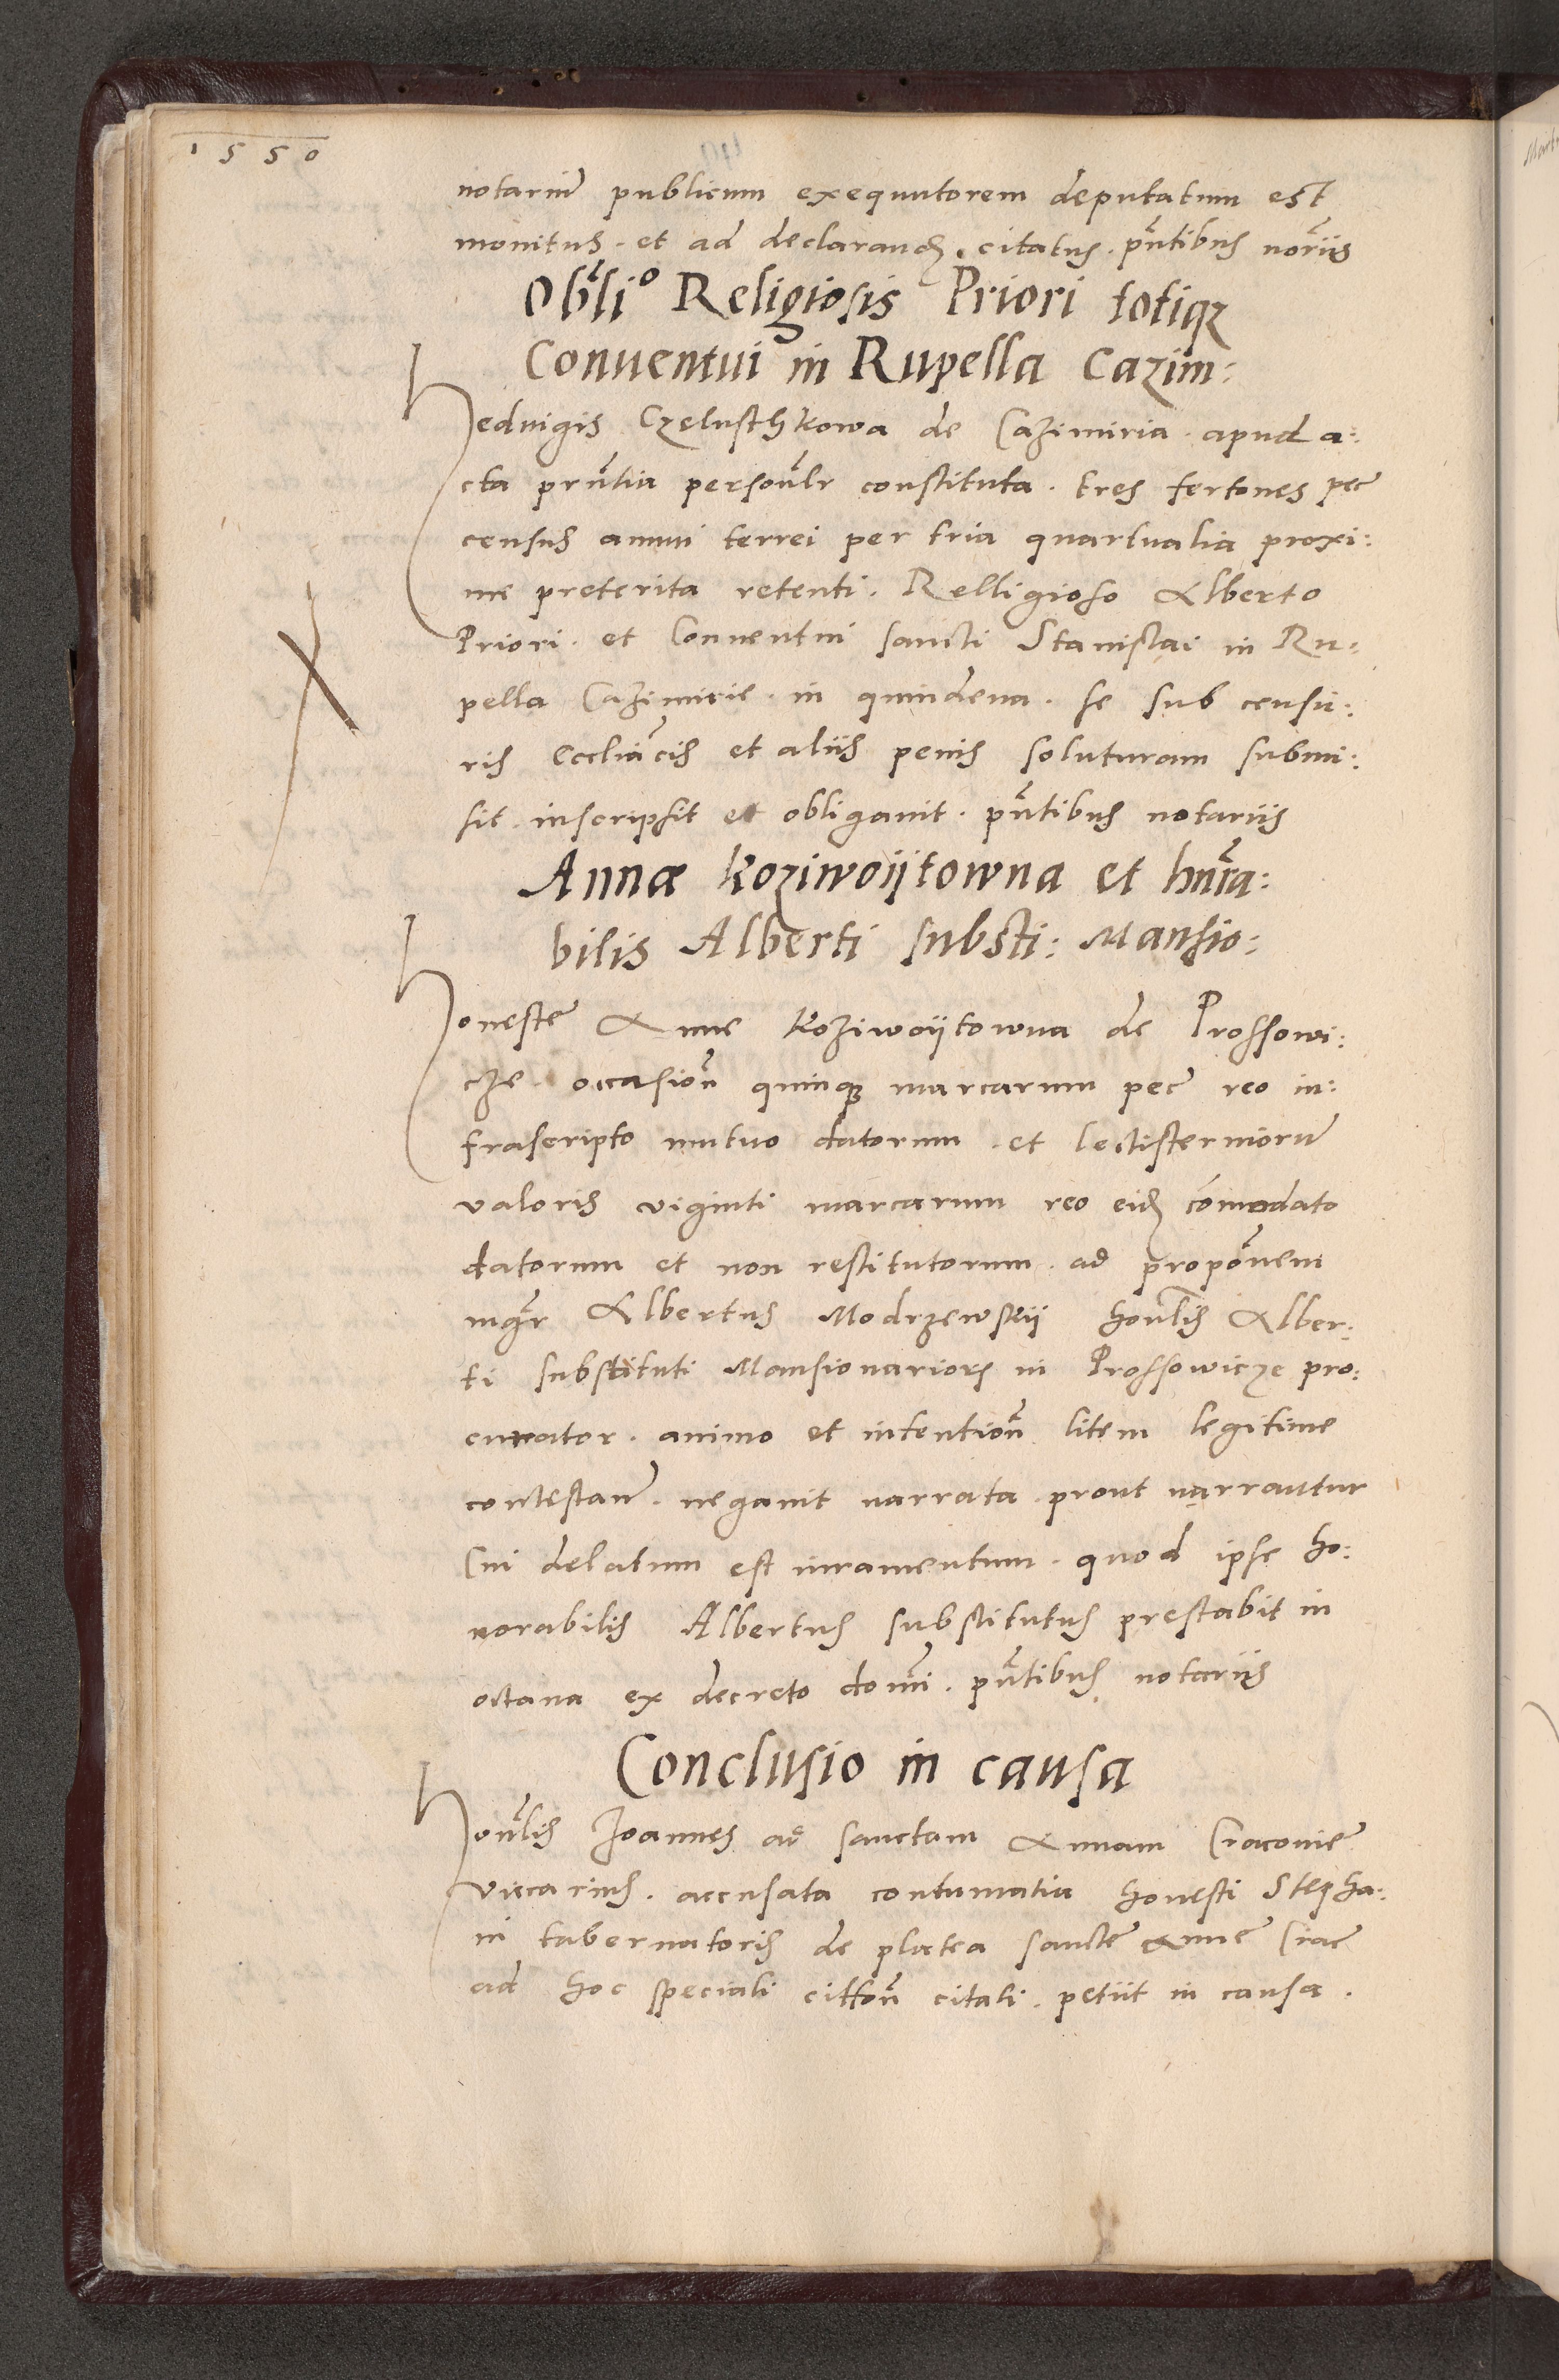 1550
notariū publicum exequutorem deputatum est
monitus. et ad declarandꝫ. citatus. pn̄tibus nor̄iis
Obl̄io Religiosis Priori totiqꝫ
Conuentui in Rupella Cazim:
Heduigis Czeluschkowa de Cazimiria. apud a:
cta pn̄tia personl̄r constituta. tres fertones pec̄
census annui terrei per tria quartualia proxi:
me preterita retenti. Relligioso Alberto
Priori. et Conuentui sancti Stanislai in Ru:
pella Cazimirie. in quindena. se sub censu:
ris Eccliācis et aliis penis soluturam submi:
sit. inscripsit et obligauit. pn̄tibus notariis
Annæ Koziwoijtowna et hnr̄a:
bilis Alberti substi: Mansio:
Honeste Anne Koziwoijtowna de Prossowi:
cze. occasion̄ quinqꝫ marcarum pec̄ reo in:
frascripto mutuo datorum. et lectisterniorū
valoris viginti marcarum reo eidꝫ comōdato
datorum et non restitutorum. ad propōnem
mgr̄ Albertus Modrzewskij honl̄is Alber:
ti substituti Mansionarioꝝ in Prossowicze pro:
curator. animo et intention̄ litem legitime
contestan̄. negauit narrata. prout narrantur
Cui delatum est iuramentum. quod ipse ho:
norabilis Albertus substitutus prestabit in
octaua ex decreto domī. pn̄tibus notariis
Conclusio in causa
Honl̄is Joannes ad sanctam Annam Cracouie
viccarius. accusata contumatia honesti Stepha:
ni tabernatoris de platea sancte Anne Crac̄
ad hoc speciali citt̄on citati. petiit in causa.